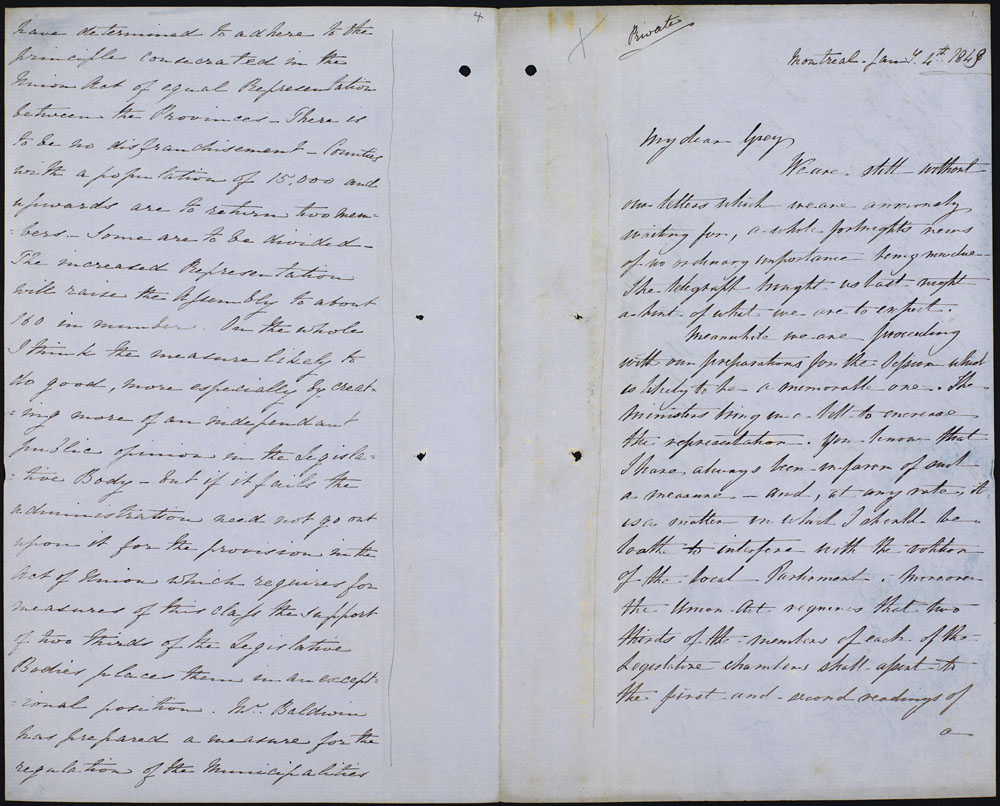 4
have determined to adhere to the
principle consecrated in the
Union Act of equal Representation
between the Provinces - There is
to be no disfranchisement - Counties
with a population of 15,000 and
upwards are to return two mem=
=bers - Some are to be divided -
The increased Representation
will raise the Assembly to about
160 in number. On the whole
I think the measure likely to
do good, more especially by creat=
=ing more of an independant
public opinion in the Legisla=
=tive Body - but if it fails the
administration need not go out
upon it for the provision in the
Act of Union which requires for
measures of this class the support
of two thirds of the Legislative
Bodies places them in an except=
=ional position. Mr. Baldwin
has prepared a measure for the
regulation of the Municipalities
1.
Private
Montreal - Jany. 4th 1849
My dear Grey
We are still without
our letters which we are anxiously
waiting for, a whole fortnights news
of no ordinary importance being overdue -
The telegraph brought us last night
a hint of what we are to expect.
Meanwhile we are proceeding
with our preparations for the Session which
is likely to be a memorable one. The
Ministers bring in a bill to encrease
the representation. You know that
I have always been in favor of such
a measure - and, at any rate, it
is a matter in which I should be
loath to interfere with the volition
of the local Parliament. Moreover
the Union Act requires that two
thirds of the members of each of the
Legislative chambers shall assent to
the first and second readings of
a